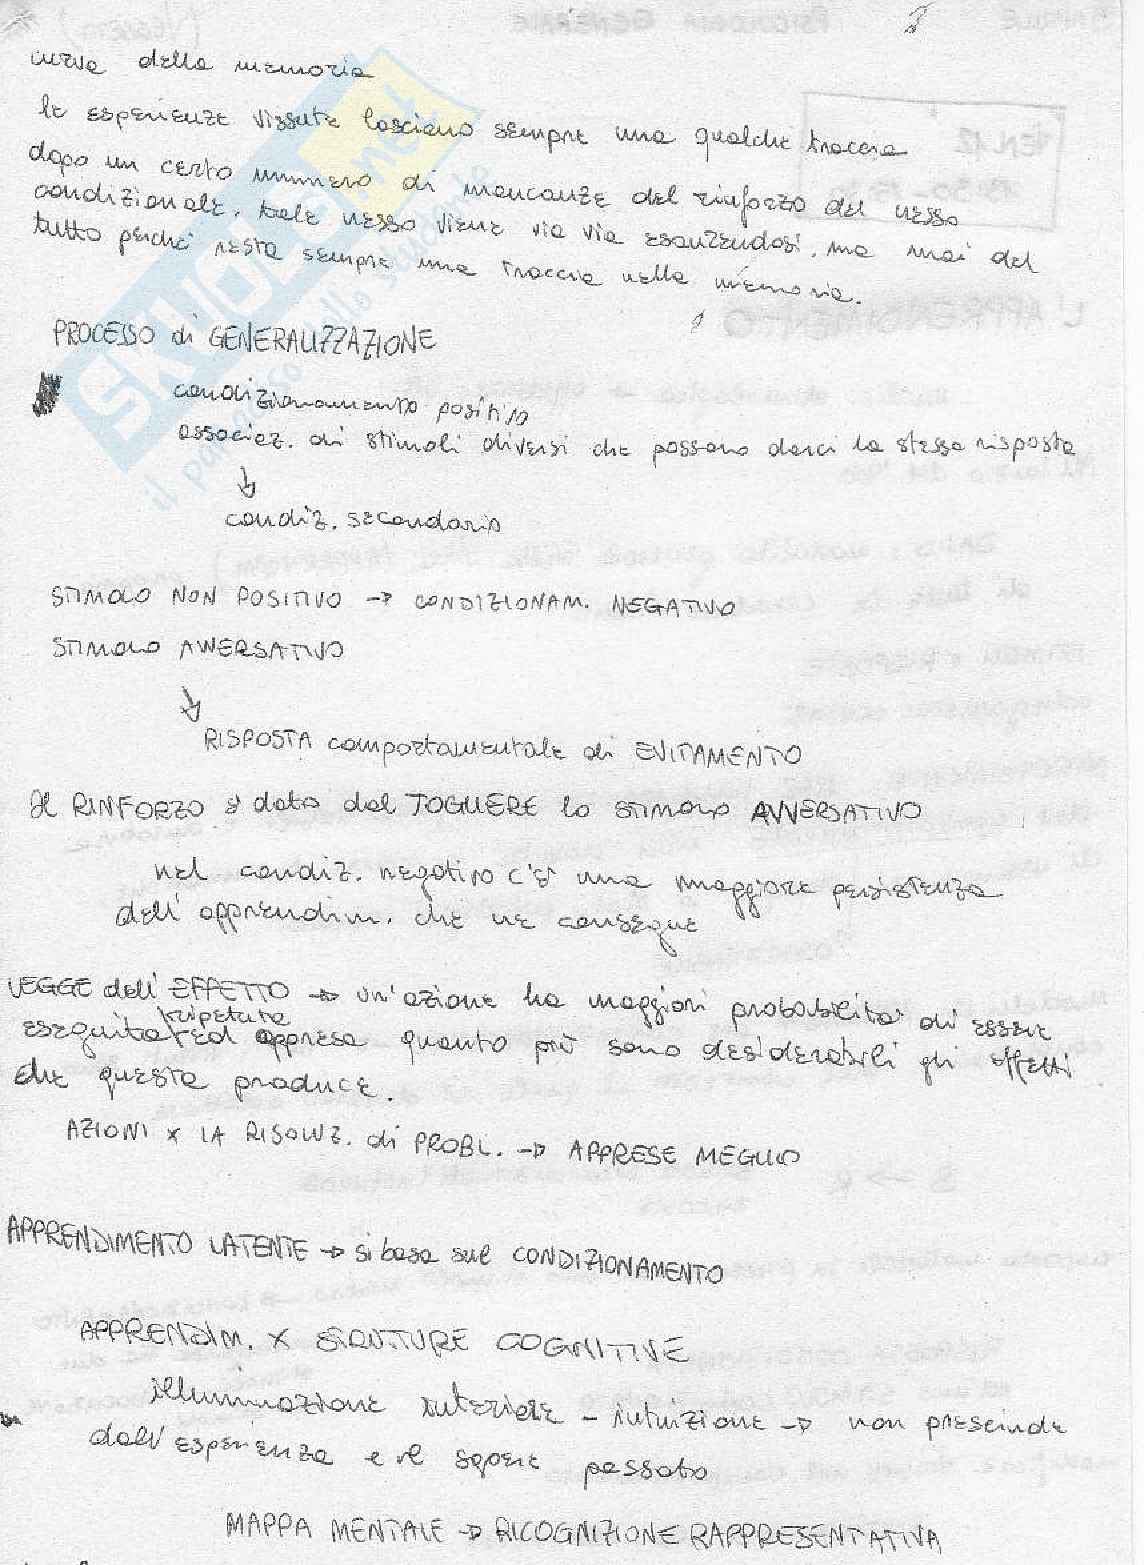 curva della memoria
le esperienze vissute lasciano sempre una qualche traccia
dopo un certo numero di mancanze del rinforzo del nesso
condizionale, tale nesso viene via via esaurendosi, ma mai del
tutto perché resta sempre una traccia nella memoria.
PROCESSO di GENERALIZZAZIONE
condizionamento positivo
associaz. di stimoli diversi che possono darci la stessa risposta
↓
condiz. secondario
STIMOLO NON POSITIVO → CONDIZIONAM. NEGATIVO
STIMOLO AVVERSATIVO
↓
RISPOSTA comportamentale di EVITAMENTO
Il RINFORZO è dato dal TOGLIERE lo STIMOLO AVVERSATIVO
nel condiz. negativo c'è una maggiore persistenza
dell'apprendim. che ne consegue
LEGGE dell'EFFETTO → un'azione ha maggiori probabilità di essere
ripetuta
eseguita ed appresa quanto più sono desiderabili gli effetti
che questa produce.
AZIONI x LA RISOLUZ. di PROBL. → APPRESE MEGLIO
APPRENDIMENTO LATENTE → si basa sul CONDIZIONAMENTO
APPRENDIM. X STRUTTURE COGNITIVE
illuminazione interiore - intuizione → non prescinde
dall'esperienza e il sapere passato
MAPPA MENTALE → RICOGNIZIONE RAPPRESENTATIVA
SKUOLA.net
il paradiso dello studente